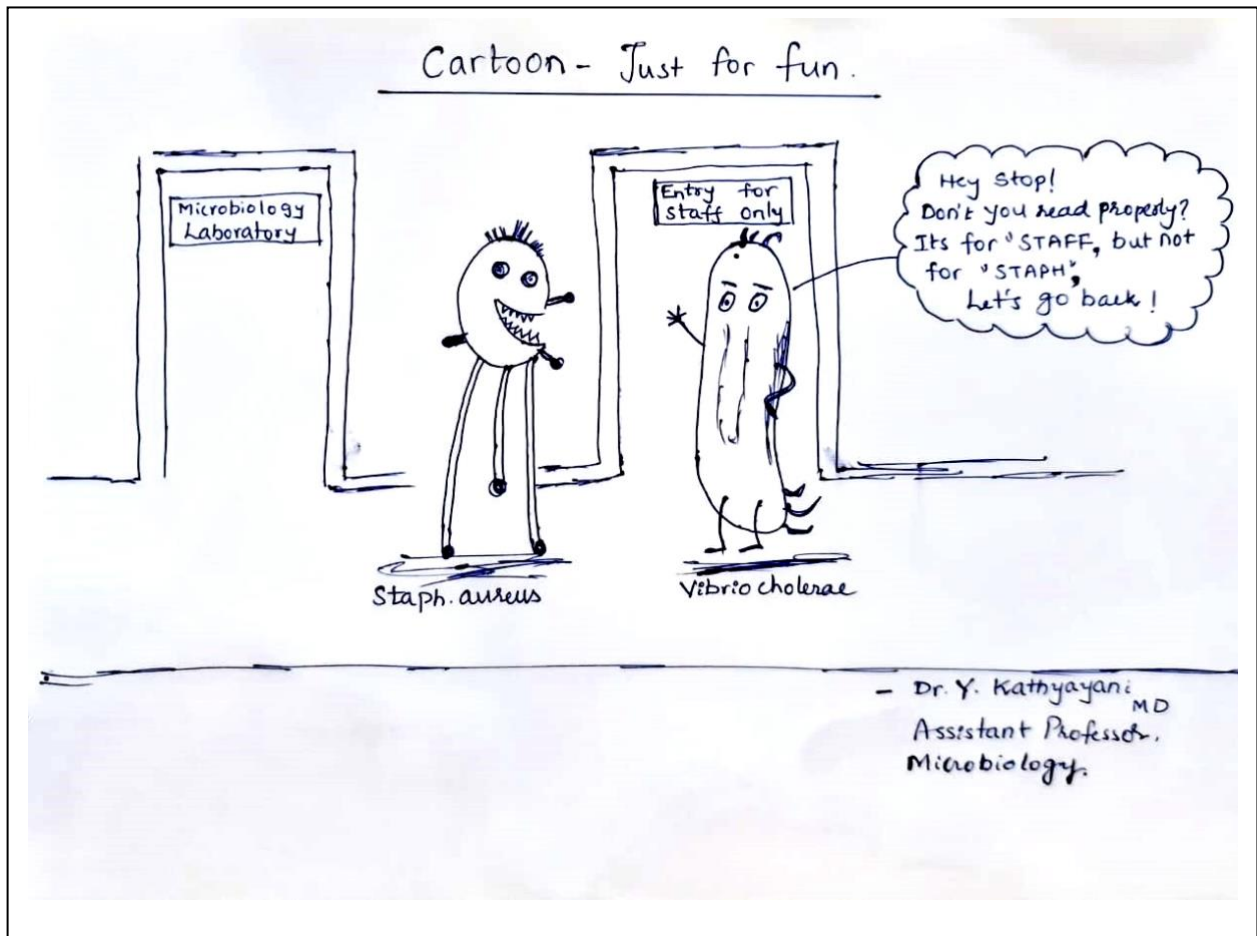 Cartoon - Just for fun.
Microbiology
Laboratory
Entry for
staff only
Hey Stop!
Don't you read properly?
Its for "STAFF, but not
for "STAPH",
Let's go back!
Staph. aureus
Vibrio cholerae
- Dr. Y. Kathyayani
MD
Assistant Professor.
Microbiology.